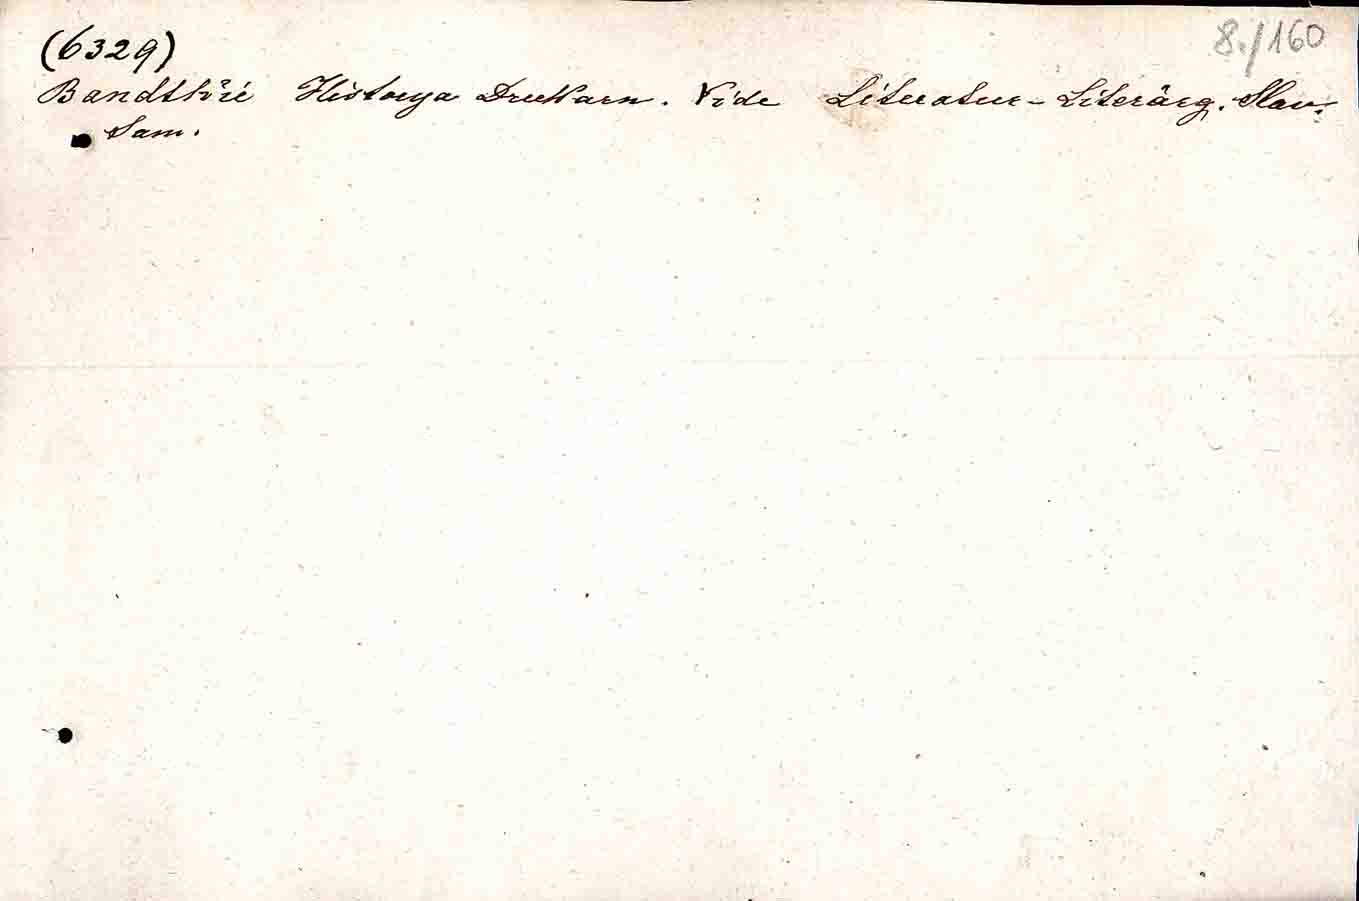 (6329) 8./160
Bandtkié Historya Drukarn. Vide Literatur-Literärg. Slav.
Sam.